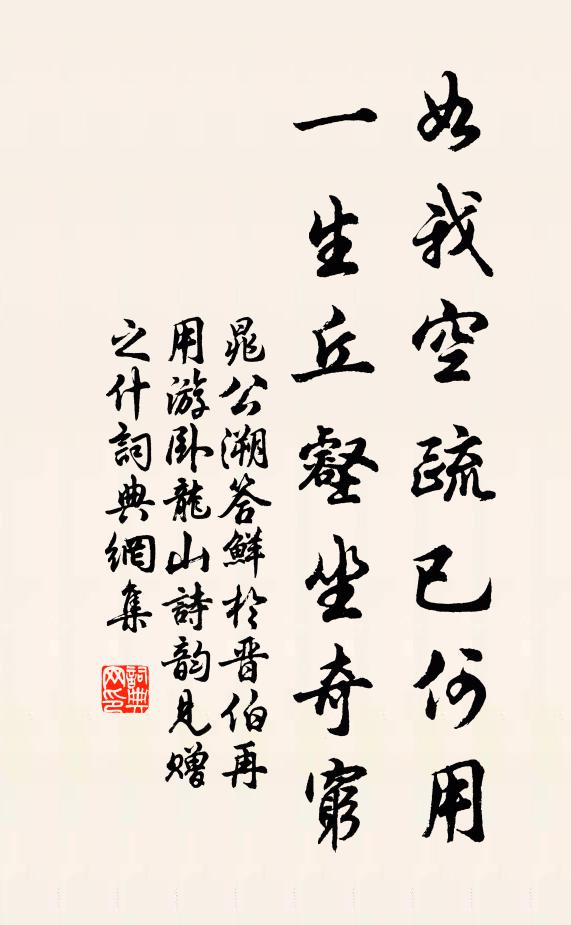 如我空疏已何用
一生丘壑坐奇窮
晁公溯答鮮於晋伯再
用游卧龍山詩韵見贈
之什詞典網集
詞典网印